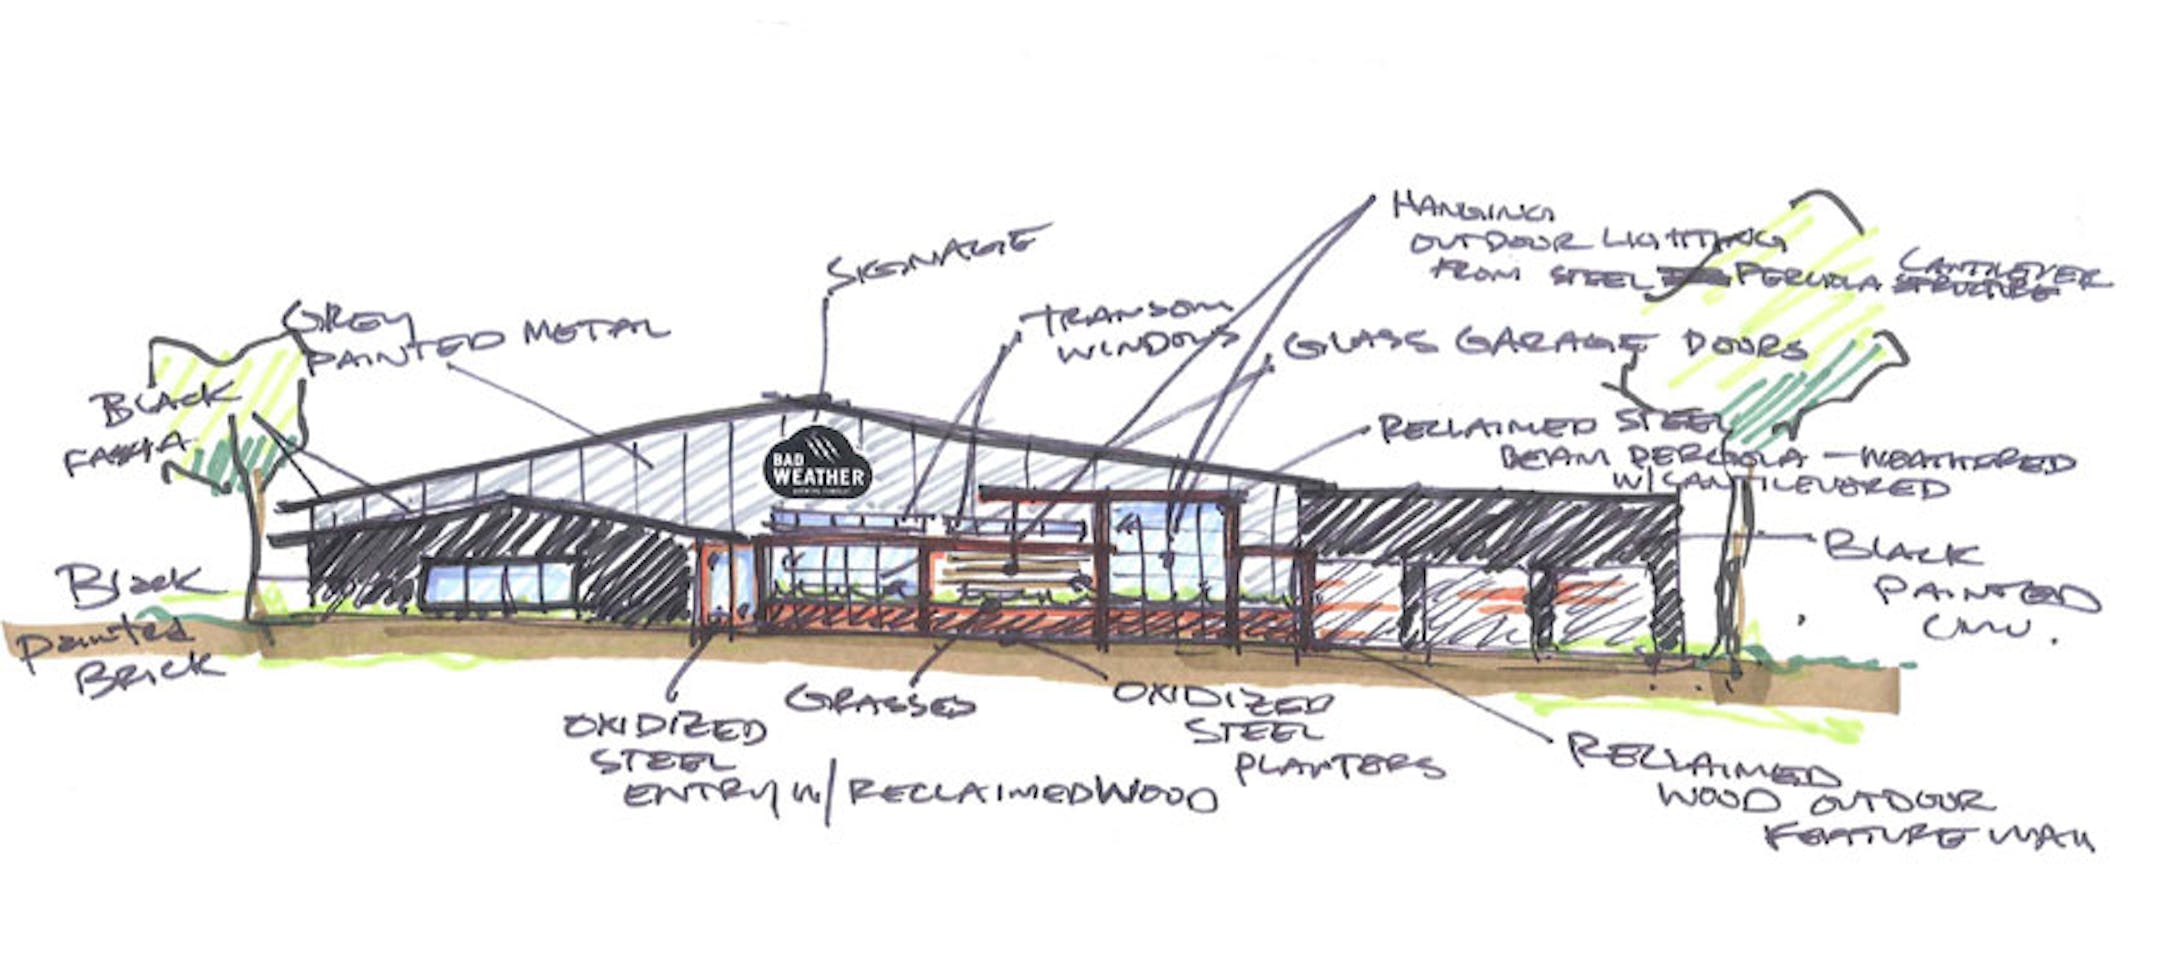 SIGNAGE
GREY
PAINTED METAL
BLACK
FASCIA
Black
Painted
BRICK
BAD
WEATHER
TRANSOM
WINDOWS
HANGING
OUTDOOR LIGHTING
FROM STEEL PERGOLA CANTILEVER
STRUCTURE
GLASS GARAGE DOORS
RECLAIMED STEEL
BEAM PERGOLA - WEATHERED
W/CANTILEVERED
BLACK
PAINTED
CMU.
OXIDIZED
STEEL
ENTRY W/ RECLAIMED WOOD
GRASSES
OXIDIZED
STEEL
PLANTERS
RECLAIMED
WOOD OUTDOOR
FEATURE WALL